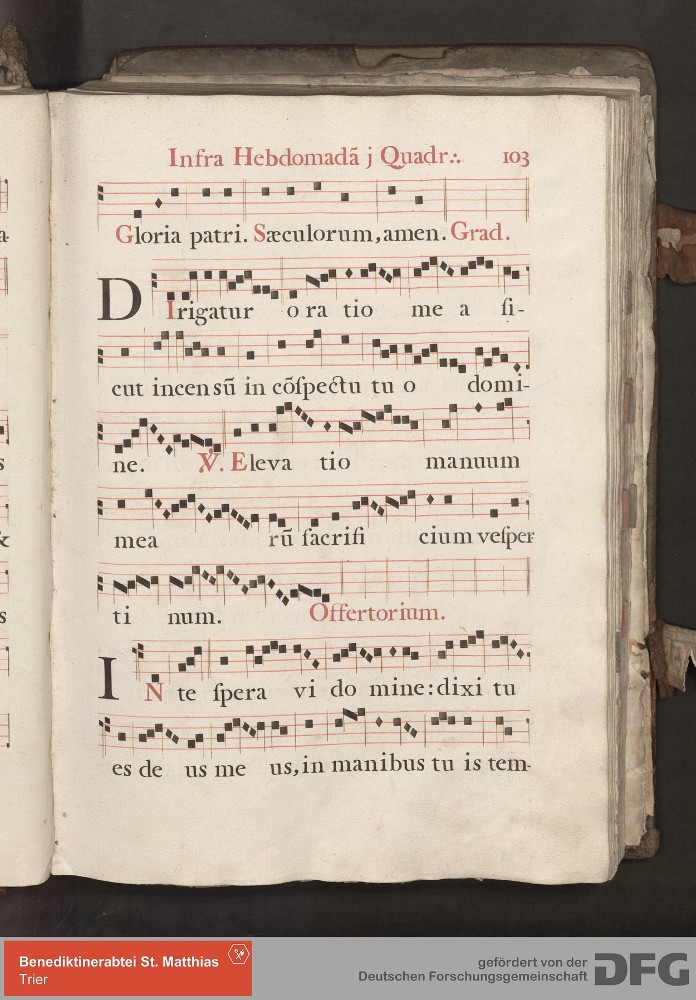 Infra Hebdomadã j Quadr∴ 103
Gloria patri. Sæculorum, amen. Grad.
DIrigatur o ra tio me a ſi-
cut incensũ in cõſpectu tu o domi-
ne. ℣. Eleva tio manuum
mea rũ ſacrifi cium veſper
ti num. Offertorium.
IN te ſpera vi do mine: dixi tu
es de us me us, in manibus tu is tem-
a-
s
&
s
Benediktinerabtei St. Matthias
Trier
gefördert von der
Deutschen Forschungsgemeinschaft
DFG